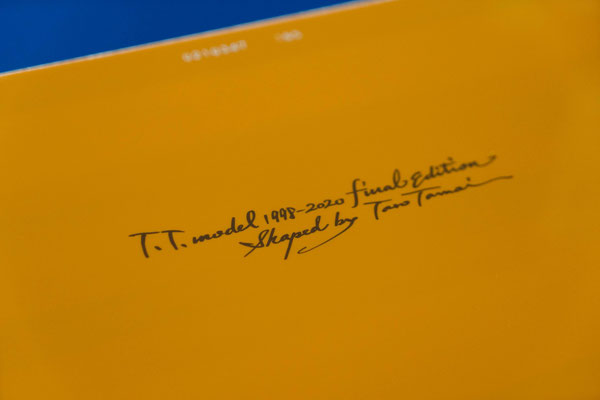 T.T. model 1998-2020 final Edition
Shaped by Taro Tamai